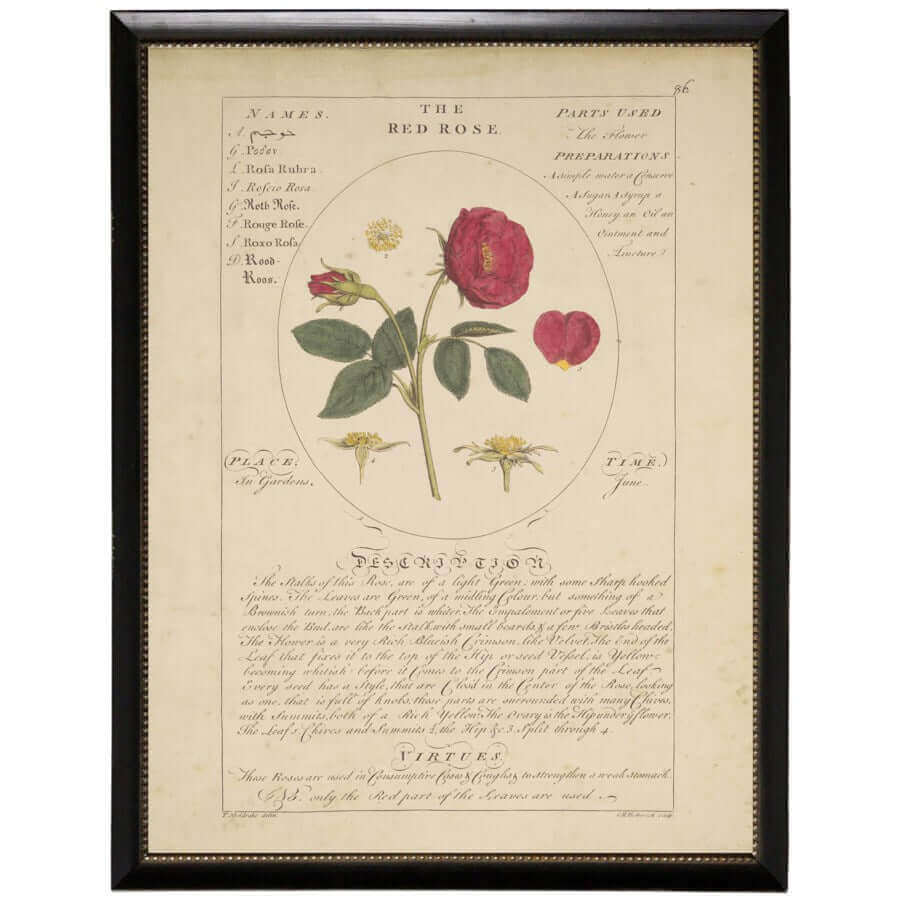 86
THE
RED ROSE.
NAMES.
G. Ροδον
L. Rosa Rubra.
I. Roscio Rosa.
G. Roth Rose.
F. Rouge Rose.
S. Roxo Rosa
D. Rood-
Roos.
PARTS USED
The Flower
PREPARATIONS
A simple water a Conserve
A Sugar A Syrup a
Honey an Oil an
Ointment and
Tincture
2
3
4
PLACE.
In Gardens.
TIME.
June
DESCRIPTION
The Stalks of this Rose, are of a light Green, with some Sharp hooked
Spines. The Leaves are Green, of a midling Colour but something of a
Brownish turn, the Back part is whiter. The Empalement or five Leaves that
enclose the Bud, are like the Stalk, with small beards, & a few Bristles headed.
The Flower is a very Rich Blueish Crimson, like Velvet. The End of the
Leaf that fixes it to the top of the Hip or seed Vessel, is Yellow
becoming whitish before it Comes to the Crimson part of the Leaf
Every seed has a Style, that are Clos'd in the Center of the Rose, looking
as one, that is full of knobs, these parts are surrounded with many Chives,
with Summits, both of a Rich Yellow. The Ovary is the Hip under y flower.
The Leaf 1 Chives and Summits 2, the Hip &c 3. Split through 4.
VIRTUES.
These Roses are used in Consumptive Cases & Coughs & to strengthen a weak Stomach.
NB. only the Red part of the Leaves are used
T. Sheldrake delin.